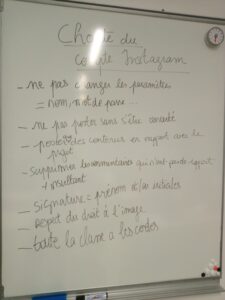 Charte du
compte Instagram
- ne pas changer les paramètres
= nom, mot de passe...
- ne pas poster sans s'être concerté
- poster des contenus en rapport avec le
projet
- supprimer les commentaires qui n'ont pas de rapport
+ insultant
- Signature = prénom et/ou initiales
- Respect du droit à l'image
- toute la classe a les codes